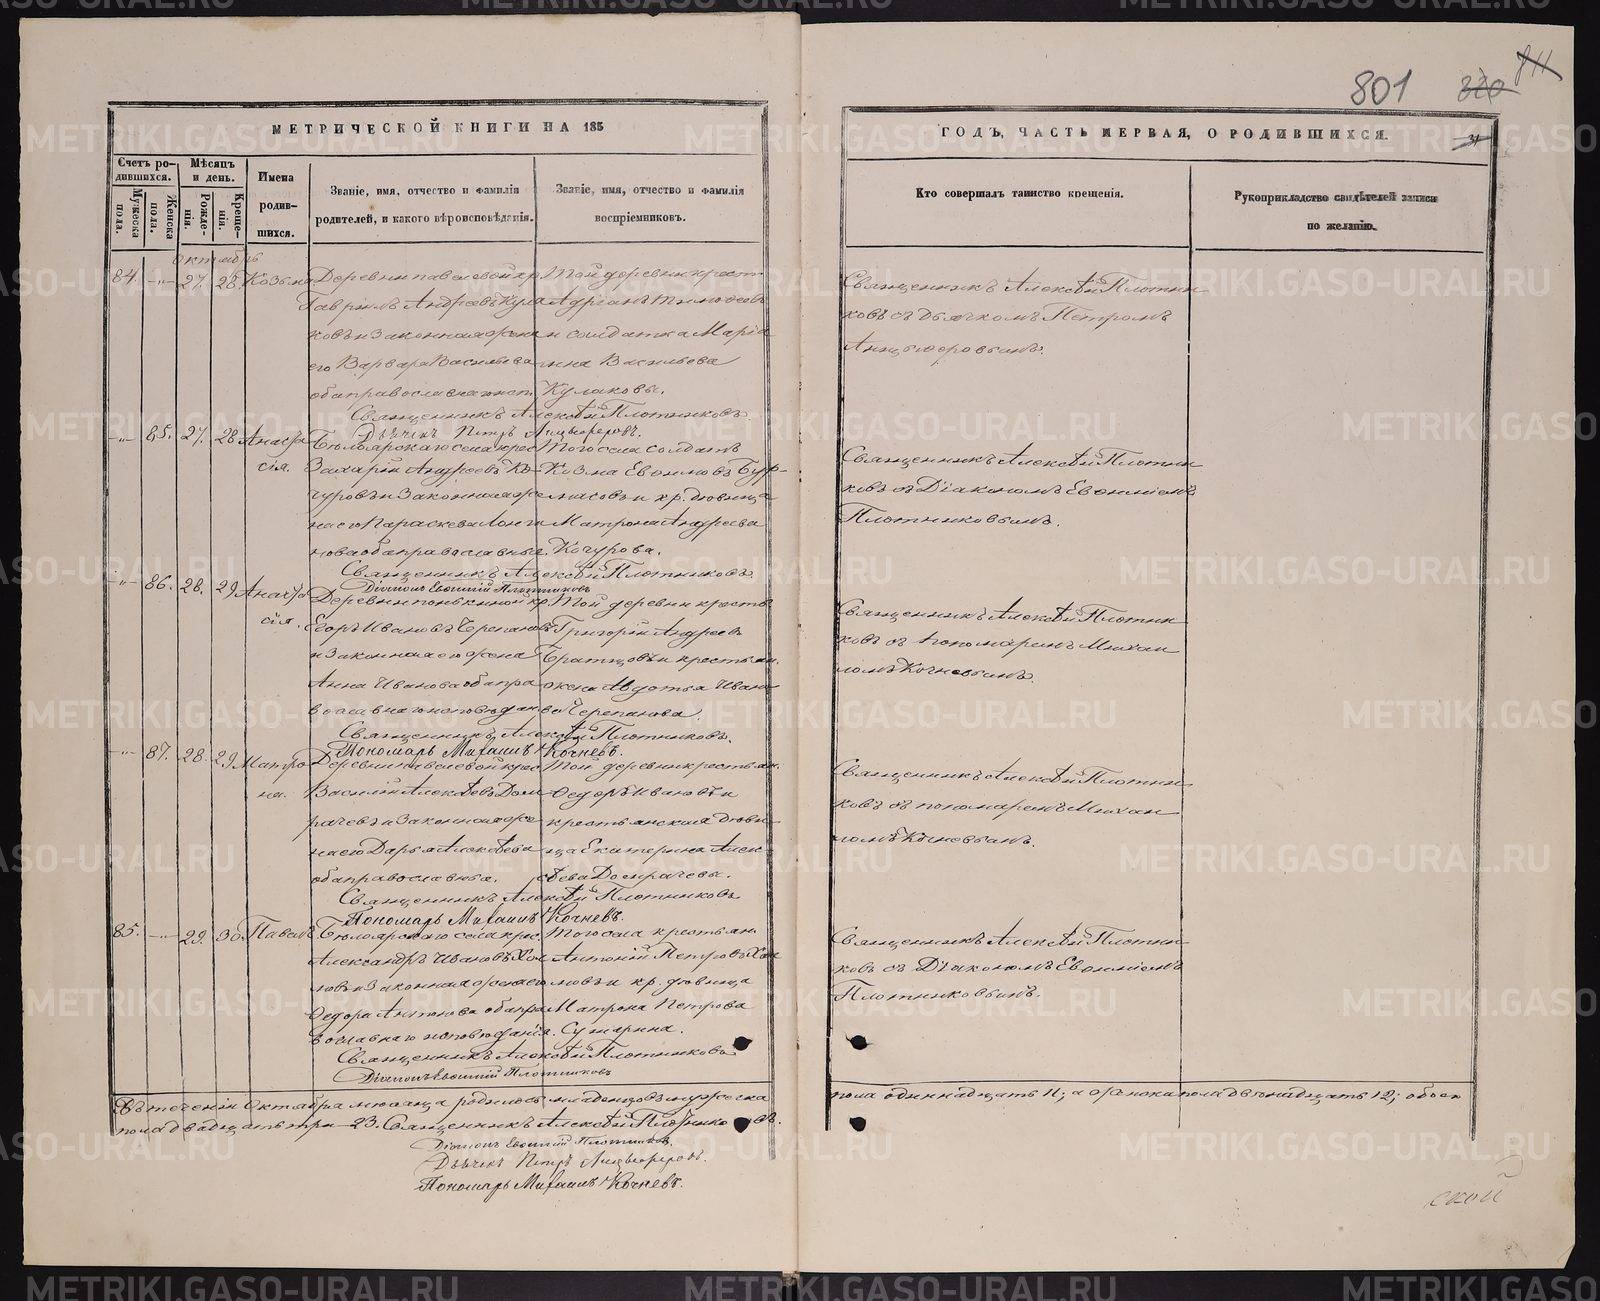 801 820 811
МЕТРИЧЕСКОЙ КНИГИ НА 185
ГОДЪ, ЧАСТЬ ПЕРВАЯ, О РОДИВШИХСЯ.
31
Счетъ ро-
дившихся.
Мужеска
пола.
Женска
пола.
Мѣсяцъ
и день.
Рожде-
нія.
Креще-
нія.
Имена
родив-
шихся.
Званіе, имя, отчество и фамилія
родителей, и какого вѣроисповѣданія.
Званіе, имя, отчество и фамилія
воспріемниковъ.
Кто совершалъ таинство крещенія.
Рукоприкладство свидѣтелей записи
по желанію.
Октябрь
84. -"- 27. 28. Козьма
Гаврилъ Андреевъ Кула
ковъ и законная жена
его Варвара Васильева
Той деревни крест
Адріанъ Тимофеевъ
и солдатка Марія
Васильева
Кулаковы.
Священникъ Алексѣй Плотни
ковъ съ дьячкомъ Петромъ
Анцыферовымъ.
Священникъ Алексѣй Плотниковъ
Дьячекъ Петръ Анцыферовъ.
-"- 85. 27. 28 Анаста
сія.
Бѣлоярскаго села крес
Захарій Андреевъ Ко-
чуровъ и законная же
на его Параскева
оба православные.
Того села солдатъ
Козма Евѳимовъ Бур-
масовъ и кр. дѣвица
Матрона Андреева
Кочурова.
Священникъ Алексѣй Плотни
ковъ съ Діакономъ Евѳиміемъ
Плотниковымъ.
Священникъ Алексѣй Плотниковъ
Діаконъ Евѳимій Плотниковъ
-"- 86. 28. 29 Анаста
сія.
Егоръ Ивановъ Черепановъ
и законная его жена
Анна Иванова оба пра
вославнаго исповѣдан
Той деревни кресть
Григорій Андреевъ
Братцовъ и крестьян.
жена Авдотья Ивано
ва Черепанова.
Священникъ Алексѣй Плотни
ковъ съ пономаремъ Михаи
ломъ Кочневымъ.
Священникъ Алексѣй Плотниковъ.
Пономарь Михаилъ Кочневъ.
-"- 87. 28. 29 Матро
на.
Василій Алексѣевъ Дом
рачевъ и законная же
на его Дарья Алексѣева
оба православные.
Той деревни крестьян.
Ѳедоръ Ивановъ и
крестьянская дѣви
ца Екатерина Алек
сѣева Домрачевы.
Священникъ Алексѣй Плотни
ковъ съ пономаремъ Михаи
ломъ Кочневымъ.
Священникъ Алексѣй Плотниковъ
Пономарь Михаилъ Кочневъ.
85. -"- 29. 30. Павелъ
Бѣлоярскаго села крес.
Александръ Ивановъ Хол
мовъ и законная жена его
Ѳедора Антонова оба пра
вославнаго исповѣданія.
Того села крестьян
Антоній Петровъ
и кр. дѣвица
Матрона Петрова
Священникъ Алексѣй Плотни
ковъ съ Діакономъ Евѳиміемъ
Плотниковымъ.
Священникъ Алексѣй Плотниковъ
Діаконъ Евѳимій Плотниковъ
Въ теченіи Октября мѣсяца родилось младенцовъ мужеска
пола одиннадцать 11; а женска пола двѣнадцать 12; обоего
пола двадцать три – 23. Священникъ Алексѣй Плотниковъ.
Діаконъ Евѳимій Плотниковъ.
Дьячекъ Петръ Анцыферовъ.
Пономарь Михаилъ Кочневъ.
ской
METRIKI.GASO-URAL.RU